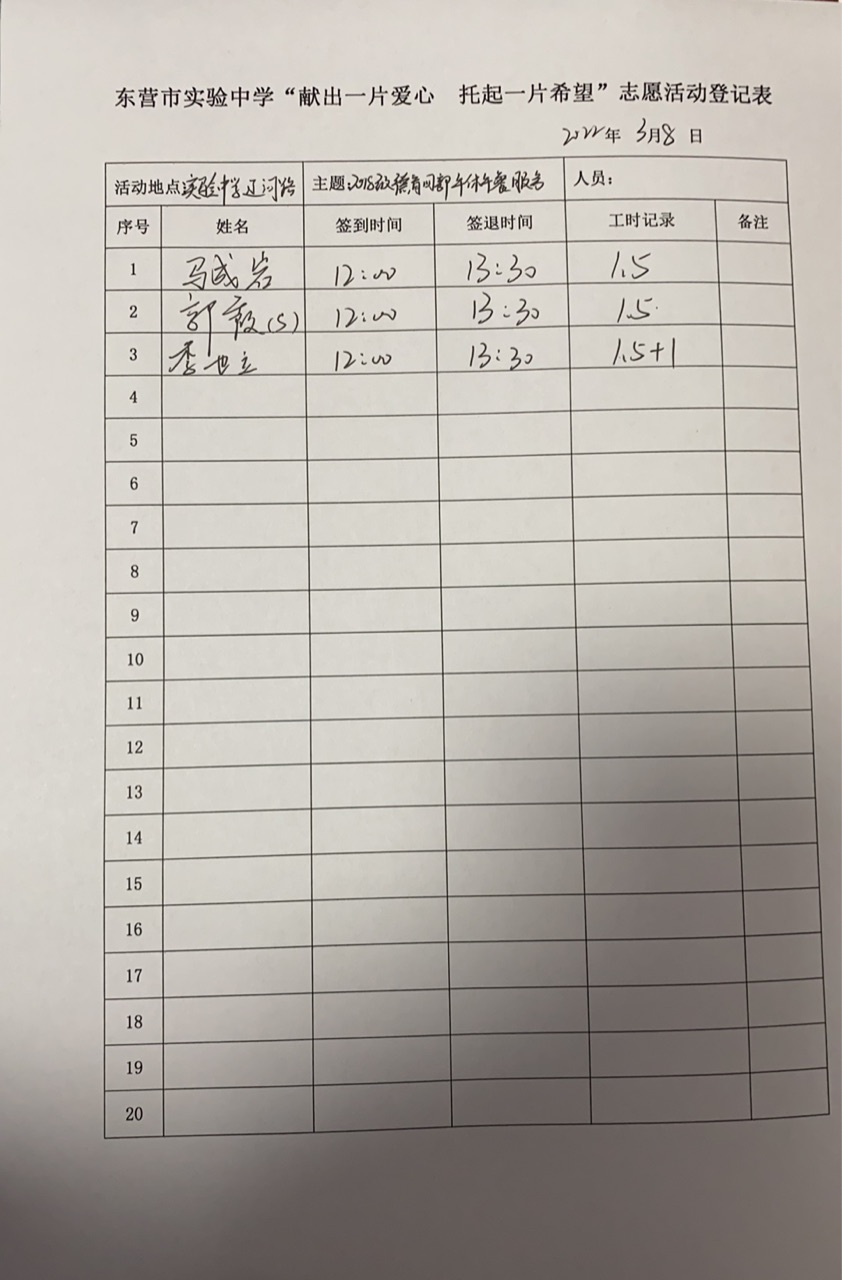 东营市实验中学“献出一片爱心 托起一片希望”志愿活动登记表
2022年 3月8日
活动地点:实验中学辽河路 主题:2018级德育四部午休午餐服务 人员:
序号 姓名 签到时间 签退时间 工时记录 备注
1 马成岩 12:00 13:30 1.5
2 郭霞(S) 12:00 13:30 1.5
3 季世立 12:00 13:30 1.5+1
4
5
6
7
8
9
10
11
12
13
14
15
16
17
18
19
20